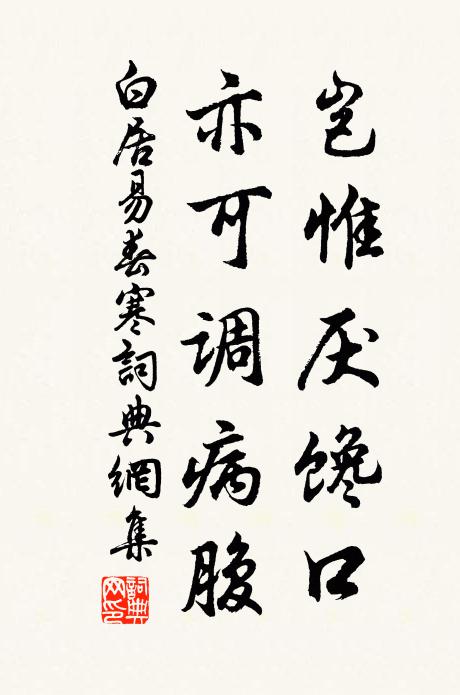 岂惟厌馋口
亦可调病腹
白居易春寒詞典網集
詞典网印